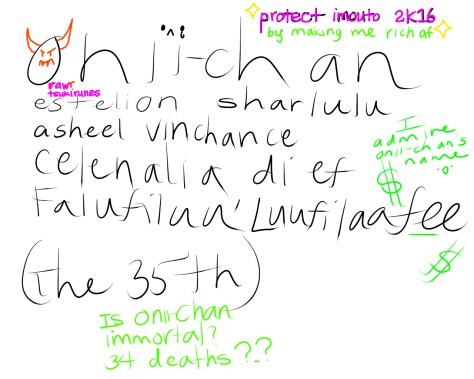 protect imouto 2K16
by making me rich af
Ohii-chan
rawr
tsukirunes
estelion sharlulu
asheel vinchance
celenalia di ef
Falufiluu' Luufilaafee
I
admire
onii-chan's
name
'o'
$
(The 35th)
$
Is Onii-Chan
immortal?
34 deaths??